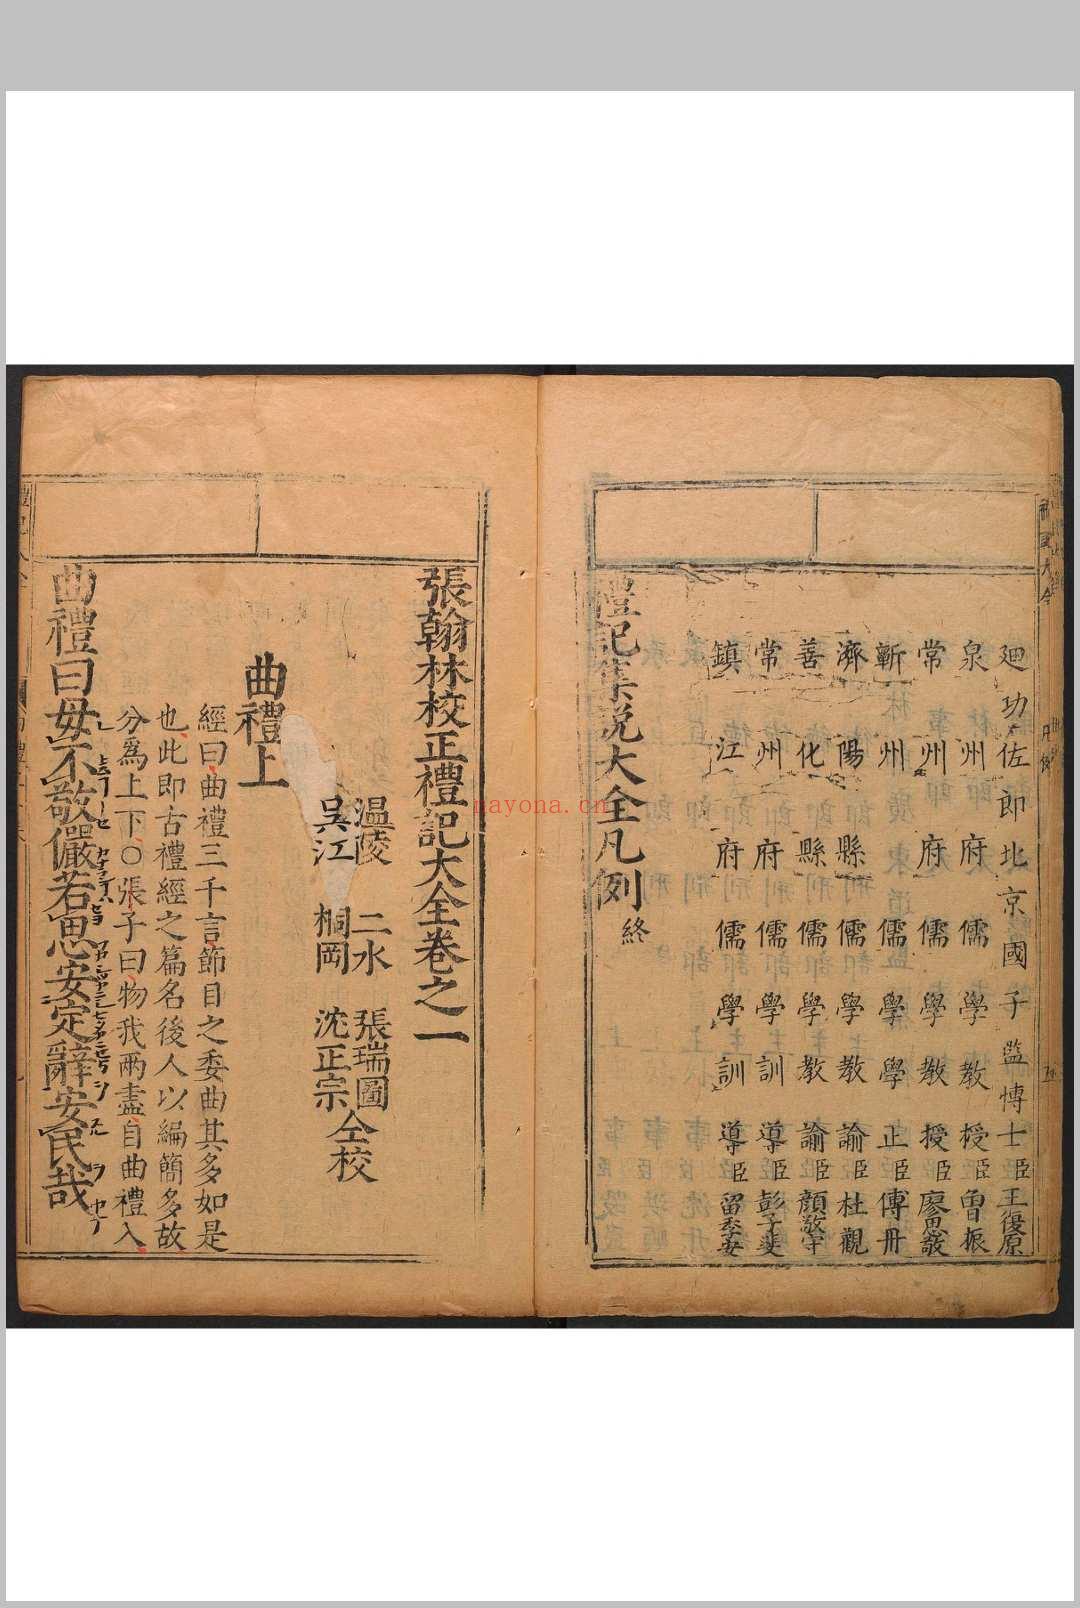 廸功佐郎北京國子監博士臣王復原
泉州府儒學教授臣曾振
常州府儒學教授臣廖思敬
蘄州儒學學正臣傅冊
濟陽縣儒學教諭臣杜觀
善化縣儒學教諭臣顏敬守
常州府儒學訓導臣彭子斐
鎮江府儒學訓導臣留季安
禮記集說大全凡例終
張翰林校正禮記大全卷之一
溫陵 二水 張瑞圖
吳江 桐岡 沈正宗 仝校
曲禮上
經曰曲禮三千言節目之委曲其多如是
也此即古禮經之篇名後人以編簡多故
分爲上下○張子曰物我兩盡自曲禮入
曲禮曰毋不敬儼若思安定辭安民哉
nayona.cn